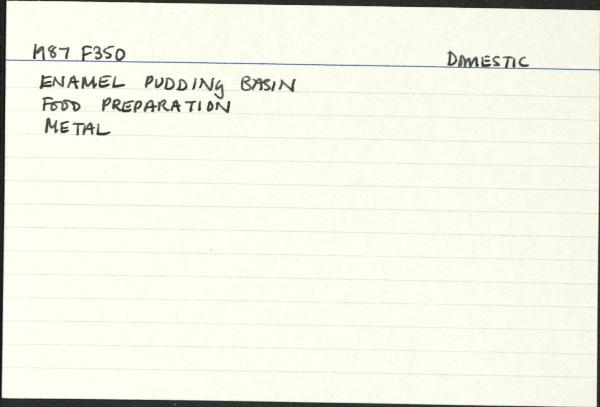 M87 F350 DOMESTIC
ENAMEL PUDDING BASIN
FOOD PREPARATION
METAL